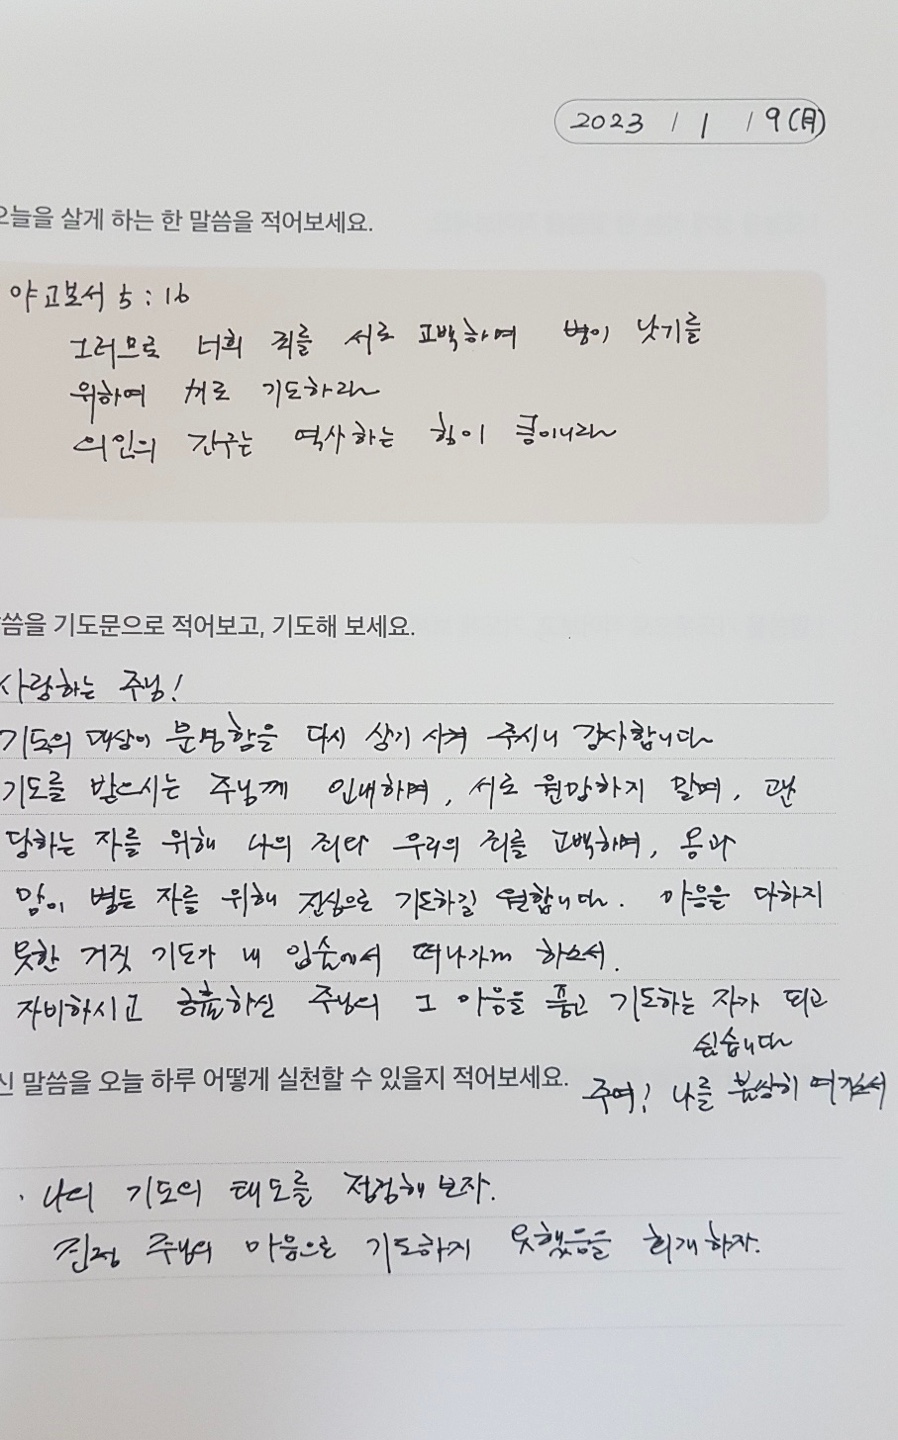 2023 / 1 / 9(月)
오늘을 살게 하는 한 말씀을 적어보세요.
야고보서 5:16
그러므로 너희 죄를 서로 고백하며 병이 낫기를
위하여 서로 기도하라
의인의 간구는 역사하는 힘이 큼이니라
말씀을 기도문으로 적어보고, 기도해 보세요.
사랑하는 주님!
기도의 대상이 분명함을 다시 상기 시켜 주시니 감사합니다
기도를 받으시는 주님께 인내하며, 서로 원망하지 말며, 고난
당하는 자를 위해 나의 죄와 우리의 죄를 고백하며, 몸과
맘이 병든 자를 위해 진심으로 기도하길 원합니다. 마음을 다하지
못한 거짓 기도가 내 입술에서 떠나가게 하소서.
자비하시고 긍휼하신 주님의 그 마음을 품고 기도하는 자가 되고
싶습니다
신 말씀을 오늘 하루 어떻게 실천할 수 있을지 적어보세요.
주여! 나를 불쌍히 여기소서
· 나의 기도의 태도를 점검해 보자.
진정 주님의 마음으로 기도하지 못했음을 회개하자.